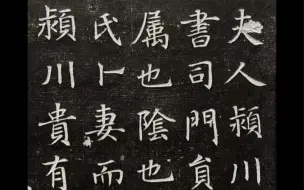 夫人潁川
書司門貟
属也陰也
氏卜妻而
潁川貴有